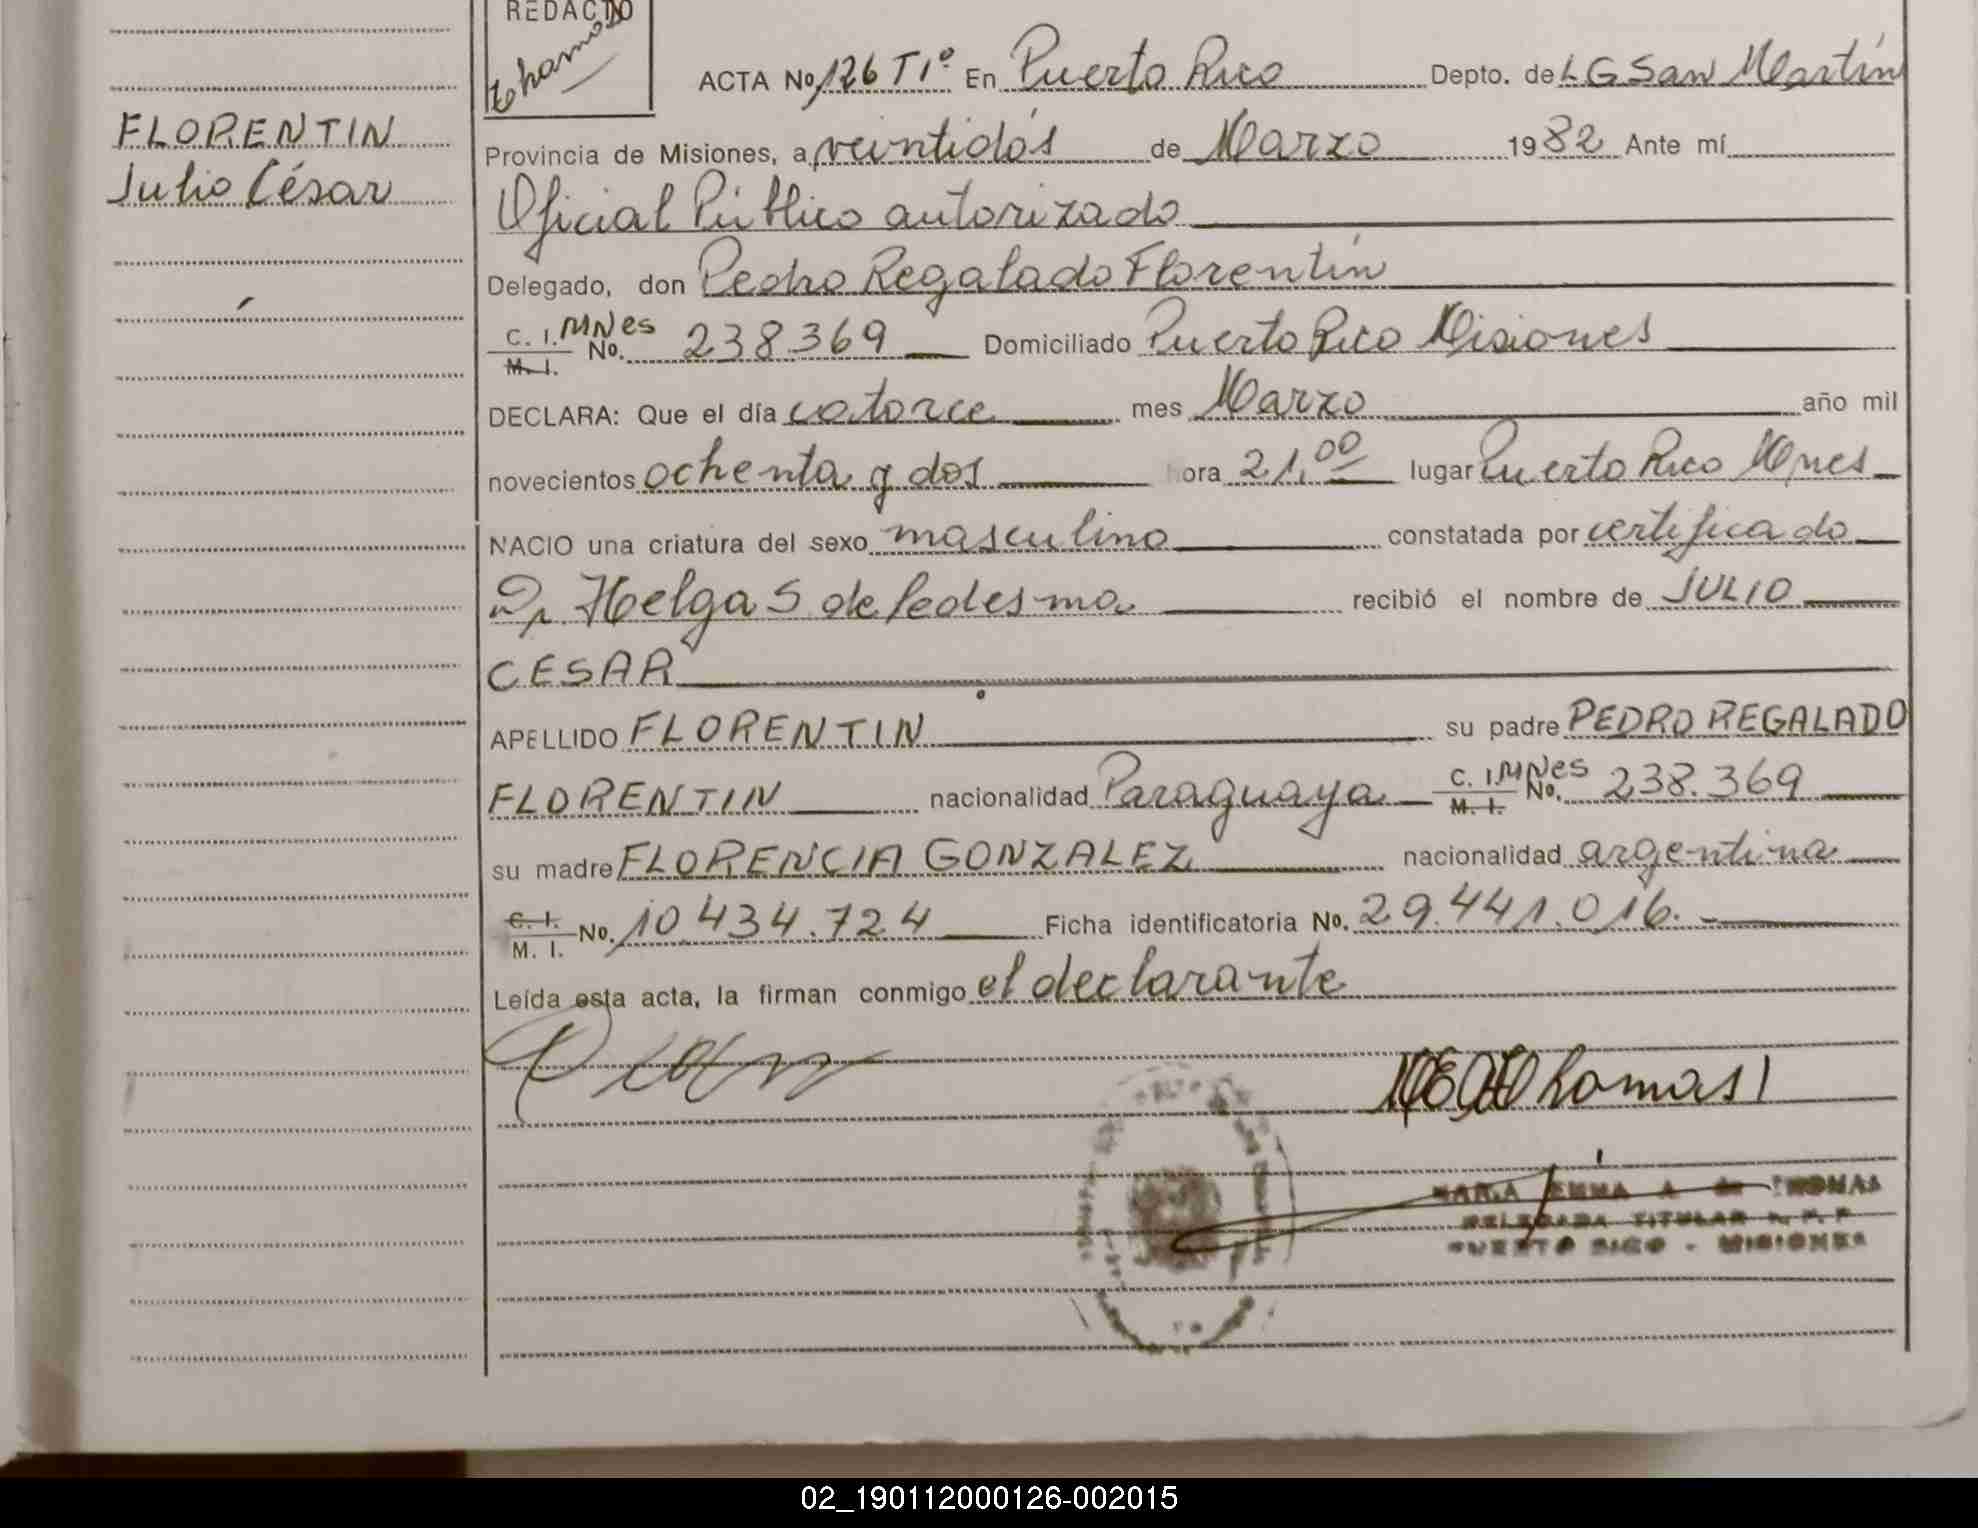 REDACTO
Thomas
FLORENTIN
Julio César
ACTA No, 126 T1º En Puerto Rico Depto. de L G San Martín
Provincia de Misiones, a veintidós de Marzo 1982 Ante mí
Oficial Público autorizado
Delegado, don Pedro Regalado Florentín
C. I. MNes
M. I. No. 238.369 Domiciliado Puerto Rico Misiones
DECLARA: Que el día catorce mes Marzo año mil
novecientos ochenta y dos hora 21,00 lugar Puerto Rico Mnes
NACIO una criatura del sexo masculino constatada por certificado
Dr. Helga S de Ledesma recibió el nombre de JULIO
CESAR
APELLIDO FLORENTIN su padre PEDRO REGALADO
FLORENTIN nacionalidad Paraguaya C. I. MNes M. I. No. 238.369
su madre FLORENCIA GONZALEZ nacionalidad argentina
C. I. M. I. No. 10.434.724 Ficha identificatoria No. 29.441.016.
Leída esta acta, la firman conmigo el declarante
Thomas
MARIA EMMA A de THOMAS
DELEGADA TITULAR R. P. P.
PUERTO RICO - MISIONES
02_190112000126-002015